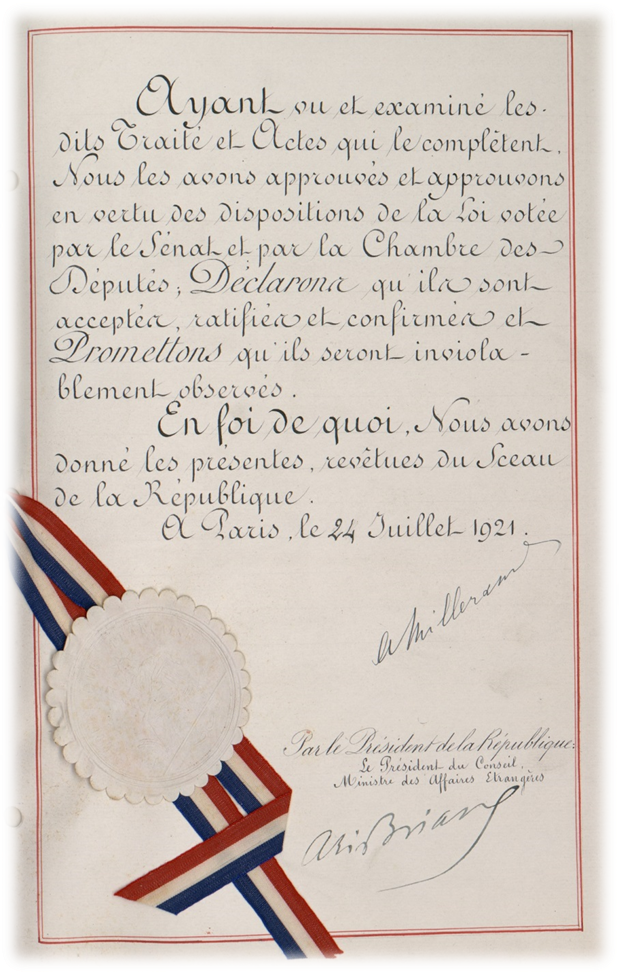 Ayant vu et examiné les-
dits Traité et Actes qui le complètent,
Nous les avons approuvés et approuvons
en vertu des dispositions de la Loi votée
par le Sénat et par la Chambre des
Députés; Déclarons qu'ils sont
acceptés, ratifiés et confirmés et
Promettons qu'ils seront inviola-
blement observés.
En foi de quoi, Nous avons
donné les présentes, revêtues du Sceau
de la République.
A Paris, le 24 Juillet 1921.
A Millerand
Par le Président de la République:
Le Président du Conseil,
Ministre des Affaires Etrangères
Aris Briand